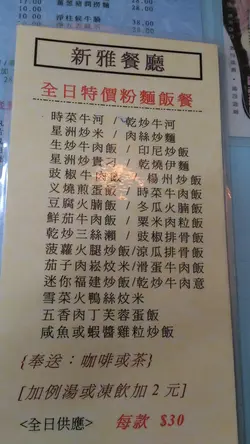 新雅餐廳
全日特價粉麵飯餐
時菜牛河 / 乾炒牛河
星洲炒米 / 肉絲炒麵
生炒牛肉飯 / 印尼炒飯
星洲炒貴刁 / 乾燒伊麵
豉椒牛肉飯 / 楊州炒飯
义燒煎蛋飯 / 時菜牛肉飯
豆腐火腩飯 / 冬瓜火腩飯
鮮茄牛肉飯 / 粟米肉粒飯
乾炒三絲瀨 / 豉椒排骨飯
菠蘿火腿炒飯/涼瓜排骨飯
茄子肉崧炆米/滑蛋牛肉飯
迷你福建炒飯/乾炒牛肉意
雪菜火鴨絲炆米
五香肉丁芙蓉蛋飯
咸魚或蝦醬雞粒炒飯
{奉送：咖啡或茶}
[加例湯或凍飲加 2 元]
<全日供應> 每款 $30